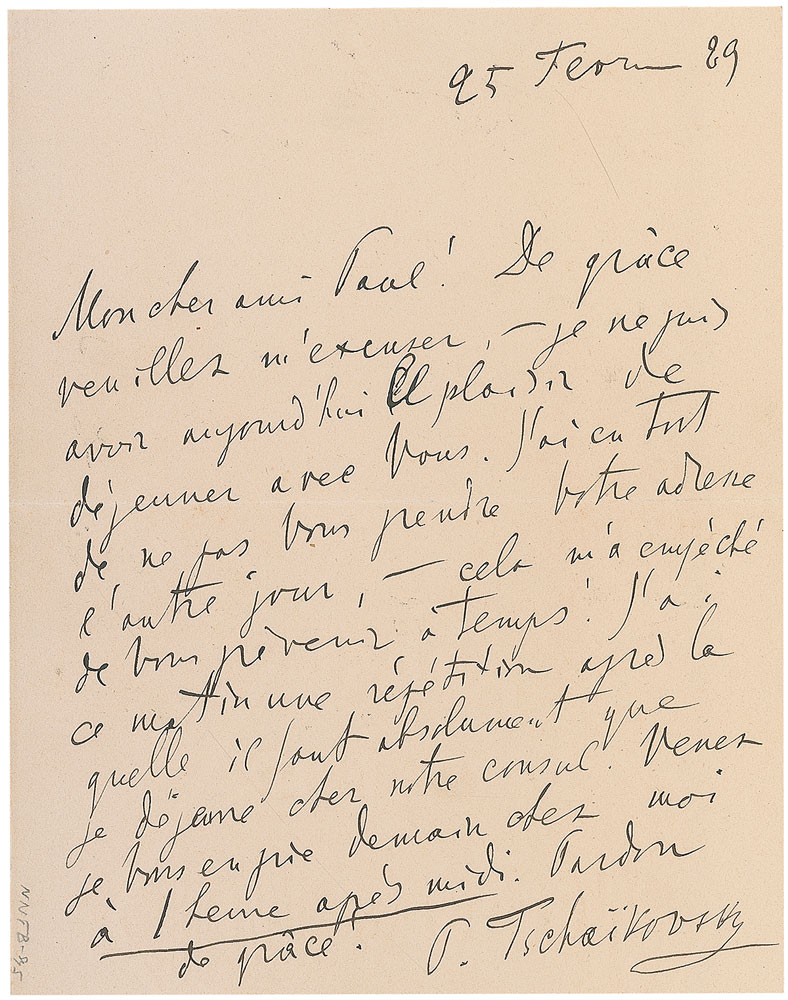 25 Fevr 89
Mon cher ami Paul! De grâce
veuillez m'excuser, – je ne puis
avoir aujourd'hui le plaisir de
déjeuner avec Vous. J'ai eu tort
de ne pas Vous prendre Votre adresse
l'autre jour, – cela m'a empêché
de Vous prévenir à temps! J'ai
ce matin une répétition après la
quelle il faut absolument que
je déjeune chez notre consul. Venez
je Vous en prie demain chez moi
à 1 heure après midi. Pardon
de grâce!
P. Tschaïkovsky